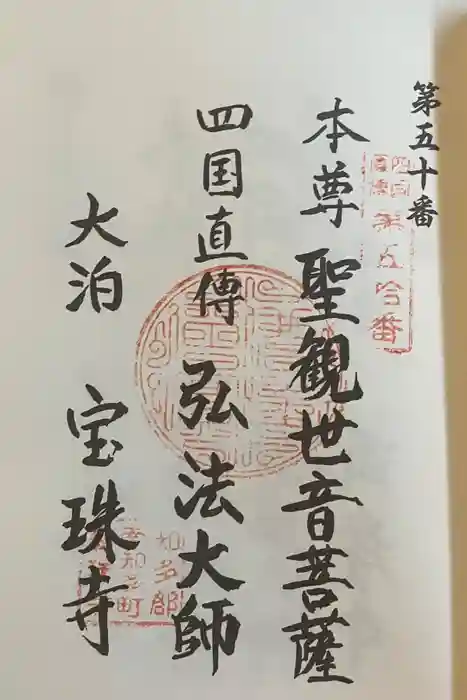 第五十番
本尊 聖観世音菩薩
四国直傳 弘法大師
大泊 宝珠寺
四国
直傳
第五十番
知多郡